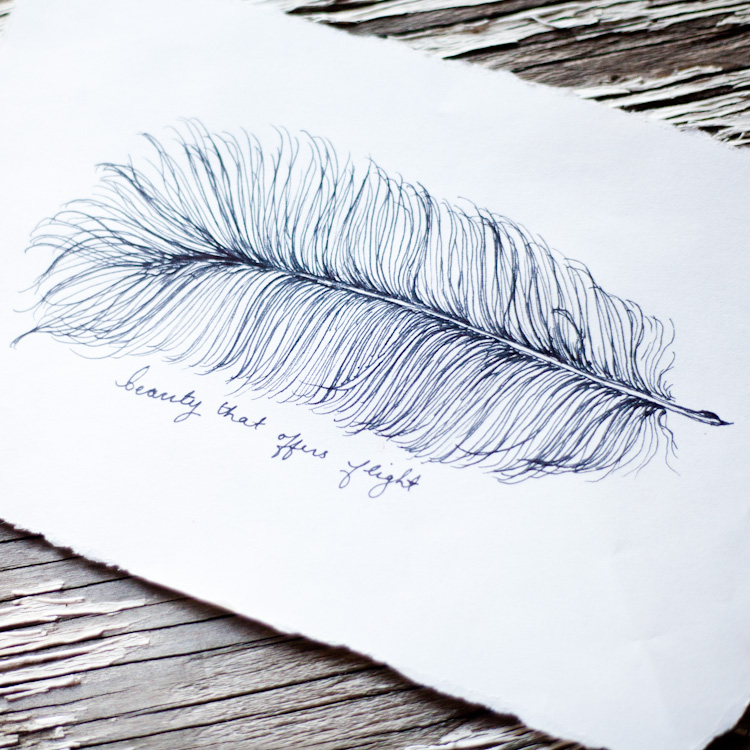 beauty that offers flight